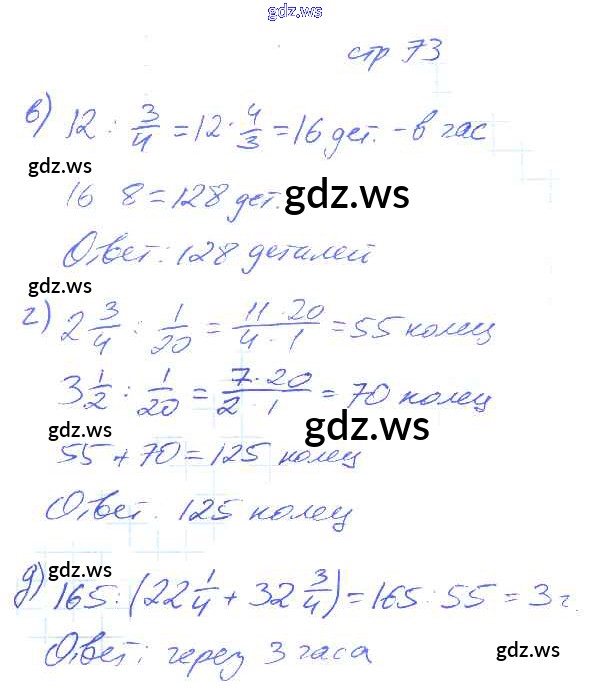 gdz.ws
стр 73
в) 12 : 3/4 = 12 · 4/3 = 16 дет. - в час
gdz.ws
16 8 = 128 дет. gdz.ws
Ответ: 128 деталей
gdz.ws
г) 2 3/4 : 1/20 = 11·20/4·1 = 55 колец
3 1/2 : 1/20 = 7·20/2·1 = 70 колец
gdz.ws gdz.ws
55 + 70 = 125 колец
Ответ. 125 колец
gdz.ws
д) 165 : (22 1/4 + 32 3/4) = 165 : 55 = 3 ч.
Ответ: через 3 часа gdz.ws